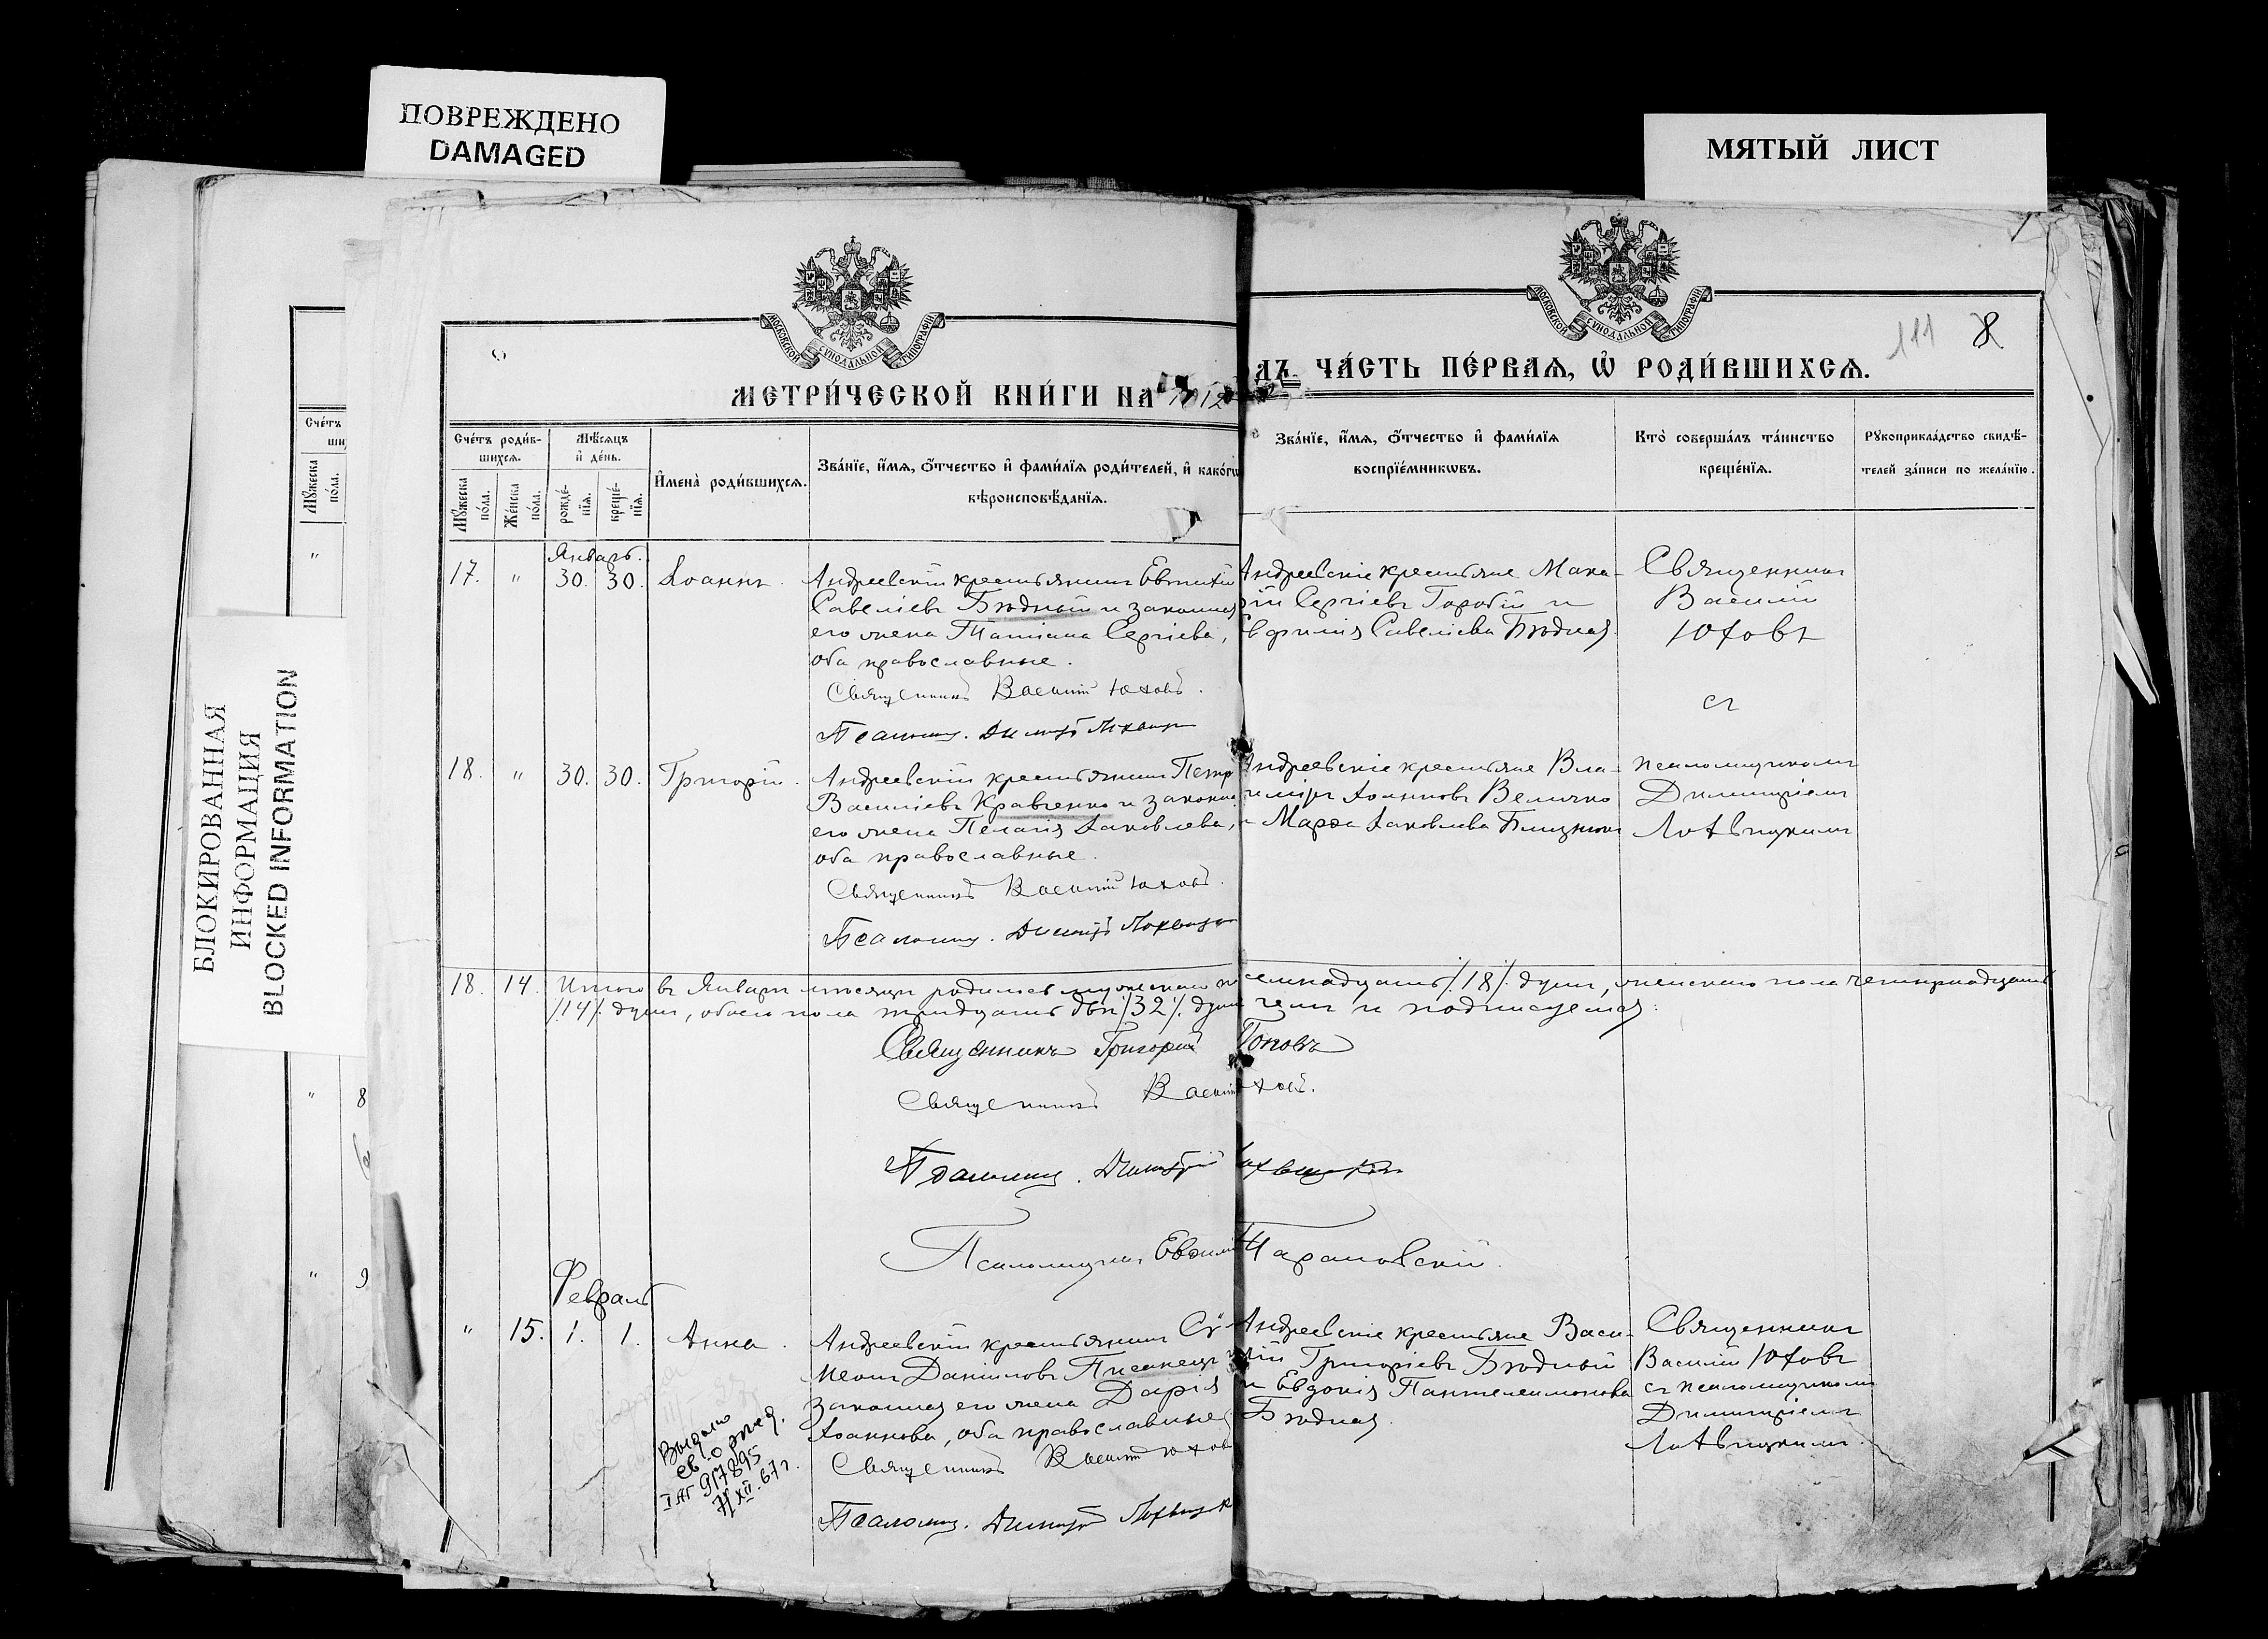 ПОВРЕЖДЕНО
DAMAGED
МЯТЫЙ ЛИСТ
БЛОКИРОВАННАЯ
ИНФОРМАЦИЯ
BLOCKED INFORMATION
МОСКОВСКОЙ СѴНОДАЛЬНОЙ ТИПОГРАФІИ
МОСКОВСКОЙ СѴНОДАЛЬНОЙ ТИПОГРАФІИ
111 8
МЕТРИ́ЧЕСКОЙ КНИ́ГИ НА 1912
ДЪ ЧА́СТЬ ПЕ́РВАѦ, Ѡ҆ РОДИ́ВШИХСѦ.
Сче́тъ роди́в-
шихсѧ.
Мѣ́сѧцъ
и҆ де́нь.
Мꙋ́жеска
по́ла.
Же́нска
по́ла.
рожде́-
нїѧ.
креще́-
нїѧ.
И҆мена̀ роди́вшихсѧ.
Зва́нїе, и҆́мѧ, ѻ҆́тчество и҆ фамі́лїѧ роди́телей, и҆ како́гѡ
вѣроисповѣ́данїѧ.
Зва́нїе, и҆́мѧ, ѻ҆́тчество и҆ фамі́лїѧ
воспрїе́мникѡвъ.
Кто̀ соверша́лъ та́инство
креще́нїѧ.
Рꙋкоприкла́дство свидѣ́-
телей за́писи по жела́нїю.
Сче́тъ
Мꙋ́жеска
по́ла.
Январь.
17. " 30. 30. Іоаннъ.
Андреевскій крестьянинъ Евѳимій
Савеліевъ Бѣдный и законная
его жена Татіана Сергіева,
оба православные.
Священникъ Василій Юховъ.
Псаломщ. Димитр Лохвиц
Андреевскіе крестьяне Мака-
рій Сергіевъ Горобій и
Евфимія Савеліева Бѣдная
Священникъ
Василій
Юховъ
съ
18. " 30. 30. Григорій.
Андреевскій крестьянинъ Петръ
Василіевъ Кравченко и законн.
его жена Пелагія Іаковлева,
оба православные.
Священникъ Василій Юховъ.
Псаломщ. Димитр Лохвицк
Андреевскіе крестьяне Вла-
диміръ Іоанновъ Величко
и Марѳа Іаковлева
псаломщикомъ
Димитріемъ
Лохвицкимъ
18. 14. Итого въ Январѣ мѣсяцѣ родилось мужескаго п семнадцать /18/. душъ, женскаго пола четырнадцать
/14/. душъ, обоего пола тридцать двѣ /32/. душ чемъ и подписуемся:
Священникъ Григорій Поповъ
Священникъ Василій ховъ.
Псаломщ. Димитрій Лохвицкій
Псаломщикъ Евѳимій Тарановскій.
8
9
Февраль
" 15. 1. 1. Анна.
Андреевскій крестьянинъ Сѵ-
меонъ Даніиловъ Писанецъ и
законная его жена Дарія
Іоаннова, оба православные
Священникъ Василій Юховъ
Псаломщ. Димитр Лохвицк
Андреевскіе крестьяне Васи-
лій Григоріевъ Бѣдный
и Евдокія Пантелеимонова
Бѣдная.
Священникъ
Василій Юховъ
съ псаломщикомъ
Димитріемъ
Лохвицкимъ.
Выдано
св. о рожд.
917895
7/XII-67г.